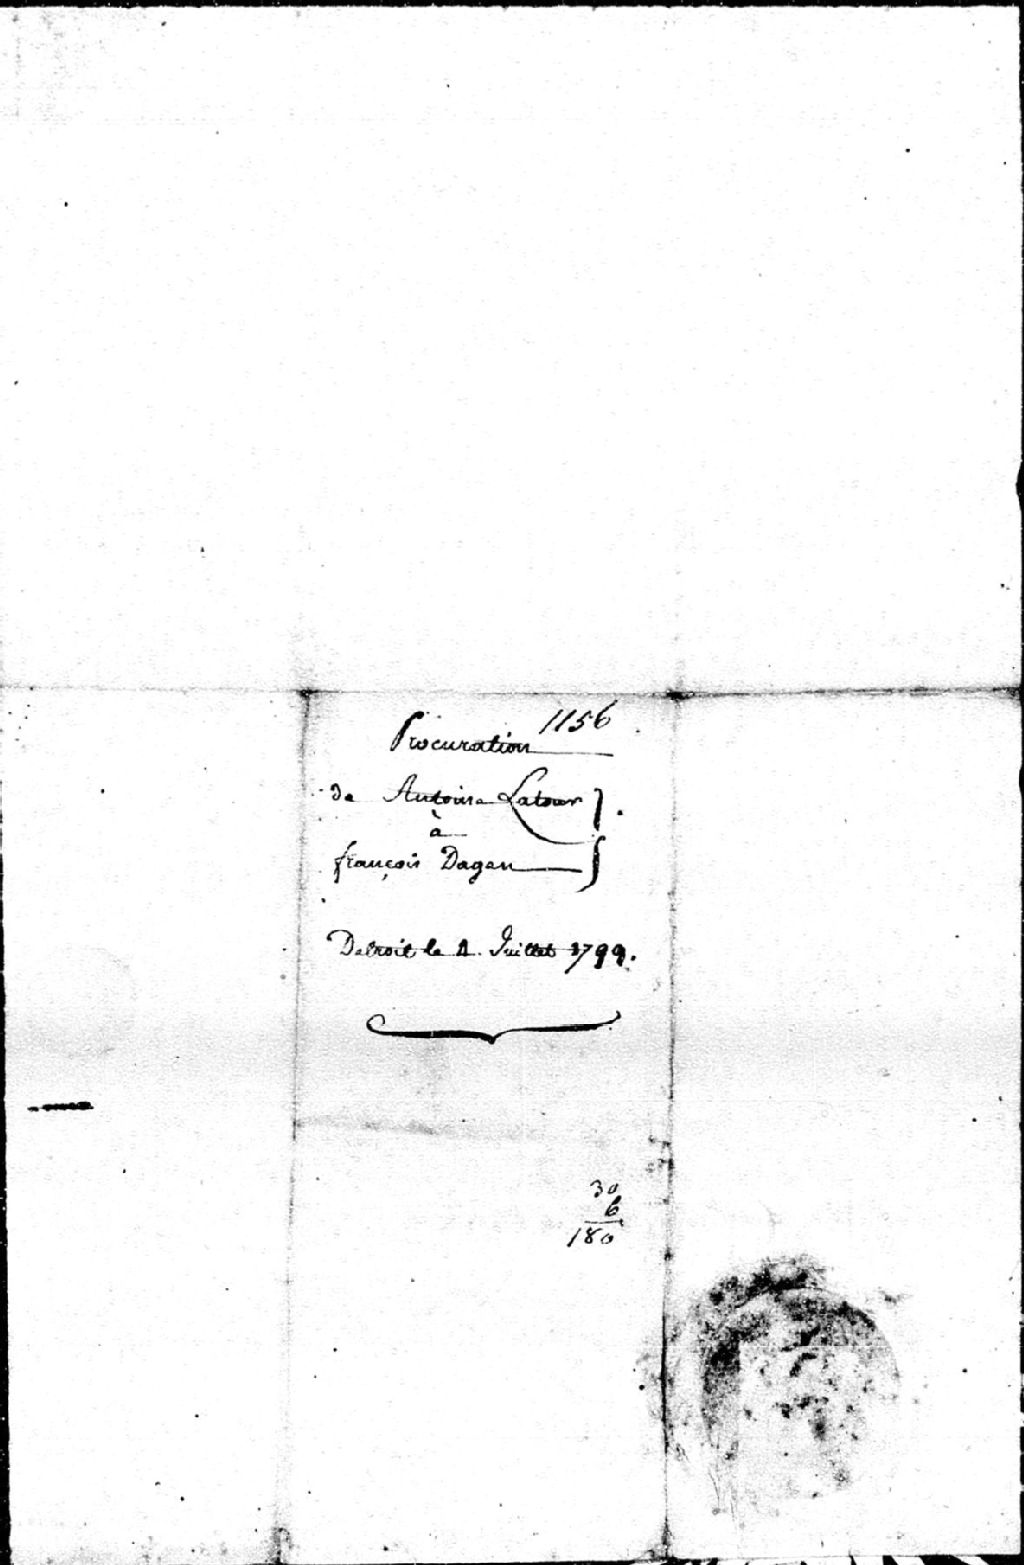 1156
Procuration
de Antoine Latour
à
françois Dagan
Detroit le 4. Juillet 1799.
30
6
180